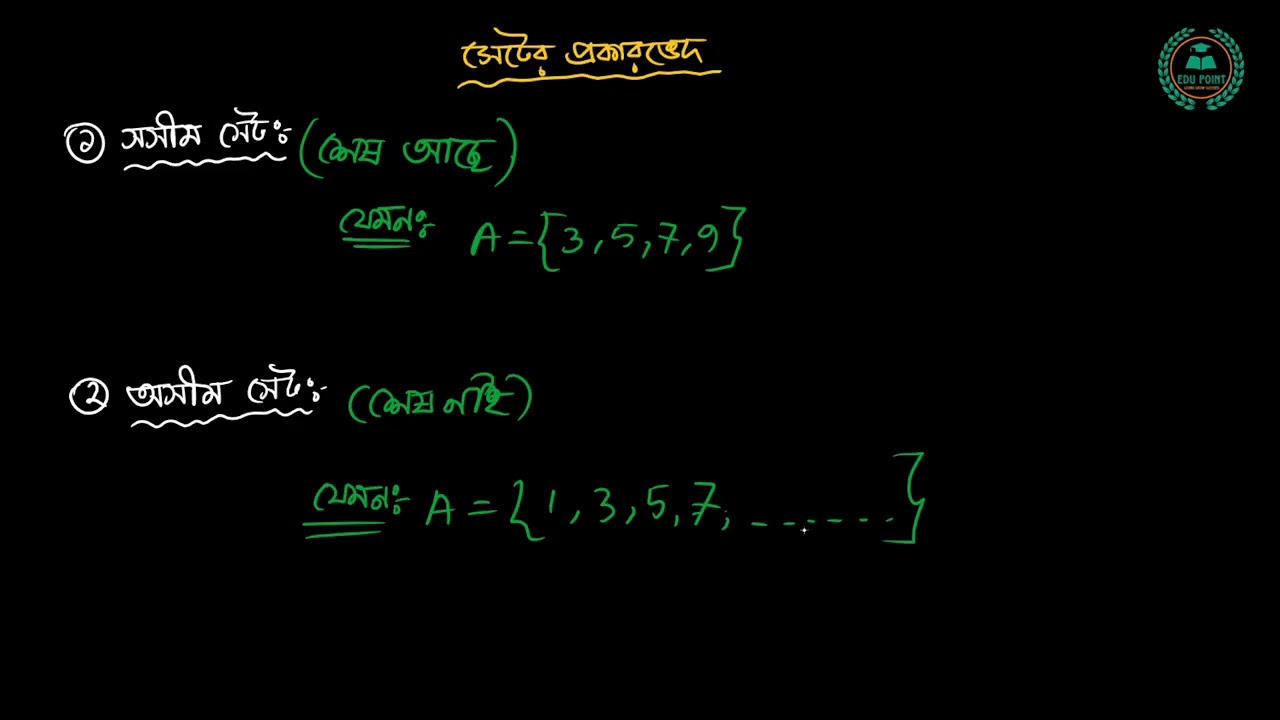 সেটের প্রকারভেদ
EDU POINT
১ সসীম সেটঃ- (শেষ আছে)
যেমনঃ- A = {3, 5, 7, 9}
২ অসীম সেটঃ- (শেষ নাই)
যেমনঃ- A = {1, 3, 5, 7, ........}